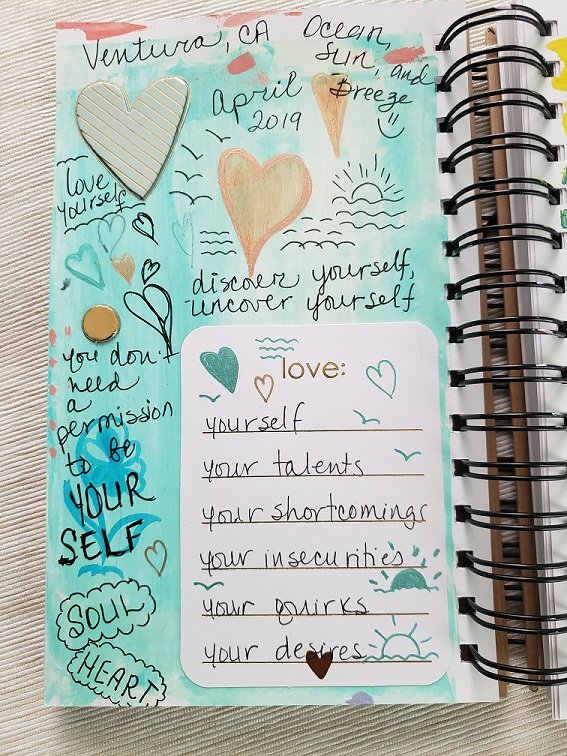 Ventura, CA
Ocean,
Sun, and
Breeze
April
2019
love
yourself
discover yourself,
uncover yourself
you don't
need
a
permission
to be
YOUR
SELF
SOUL
HEART
love:
yourself
your talents
your shortcomings
your insecurities
your quirks
your desires